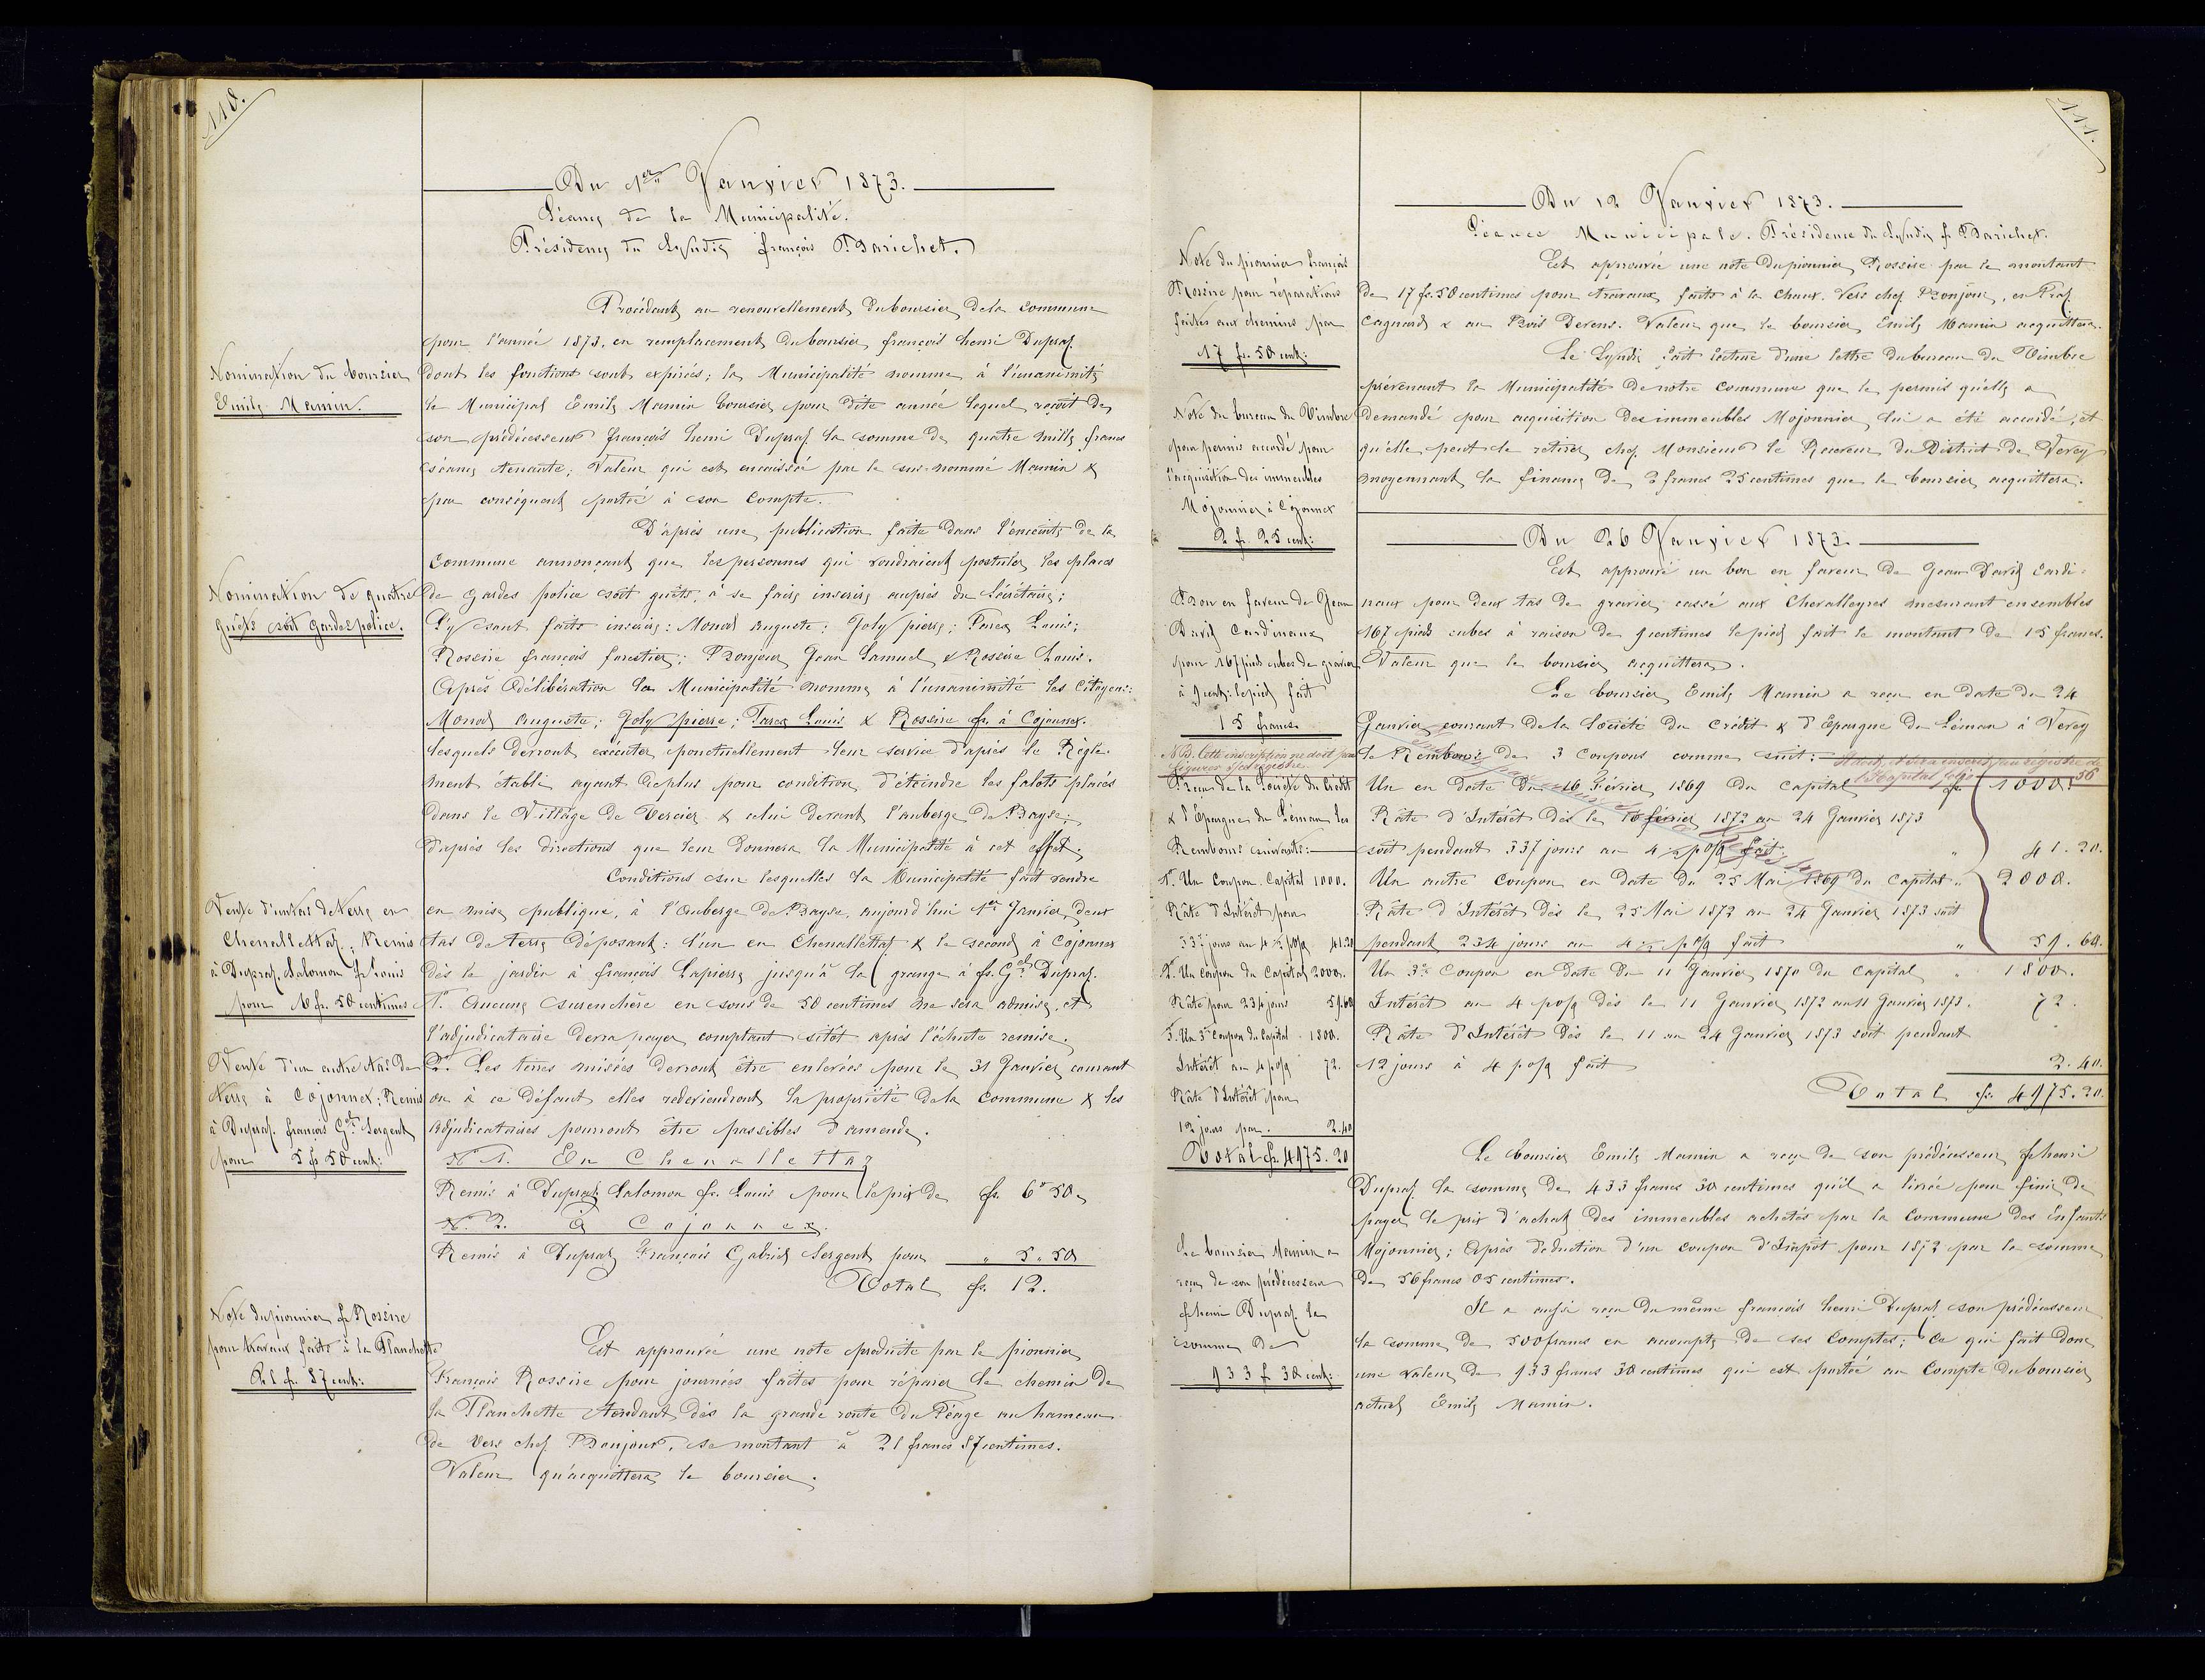 110.
Du 1er Janvier 1873.
Séance de la Municipalité.
Présidence du Syndic françois Barichet.
Nomination du boursier
Emile Mamin.
Procédant au renouvellement du boursier de la commune
pour l'année 1873, en remplacement du boursier françois henri Dupraz
dont les fonctions sont expirées; la Municipalité nomme à l'unanimité
le Municipal Emile Mamin boursier pour dite année lequel reçoit de
son prédécesseur françois henri Dupraz la somme de quatre mille francs
séance tenante; Valeur qui est encaissée par le sus-nommé Mamin &
par conséquent portée à son Compte.
Nomination de quatre
guêts soit gardes police.
D'après une publication faite dans l'enceinte de la
Commune annonçant que les personnes qui voudraient postuler les places
de gardes police soit guêts, à se faire inscrire auprès du Secrétaire;
S'y sont faits inscrire: Monod Auguste; Joly pierre; Parex Louis;
Rossire françois forestier; Bonjour Jean Samuel & Rossire Louis.
Après Délibération la Municipalité nomme à l'unanimité les Citoyens:
Monod Auguste; Joly pierre; Parex Louis & Rossire fs. à Cojonnex.
lesquels devront exécuter ponctuellement leur service d'après le Règle-
ment établi ayant de plus pour condition d'éteindre les falots placés
dans le Village de Vercier & celui devant l'auberge de Bayse;
d'après les directions que leur donnera la Municipalité à cet effet.
Vente d'un tas de terre en
Chenallettaz; Remis
à Dupraz Salomon fs Louis
pour 6 fr. 50 centimes
Conditions sur lesquelles la Municipalité fait vendre
en mise publique, à l'Auberge de Bayse, aujourd'hui 1er Janvier, deux
tas de terre déposant: l'un en Chenallettaz & le second à Cojonnex
dès le jardin à françois Lapierre jusqu'à la grange à fs. Gel Dupraz.
1o. Aucune surenchère en sous de 50 centimes ne sera admise, et
l'adjudicataire devra payer comptant sitôt après l'échute remise.
Vente d'un autre tas de
terre à Cojonnex; Remis
à Dupraz françois Gel Sergent
pour 5 fs 50 cent:
2o. Les terres misées devront être enlevées pour le 31 Janvier courant
ou à ce défaut elles redeviendront la propriété de la Commune & les
adjudicataires pourront être passibles d'amende.
No 1. En Chenallettaz
Remis à Dupraz Salomon fs. Louis pour le prix de fs. 6" 50
No. 2. à Cojonnex.
Remis à Dupraz François Gabriel Sergent pour " 5 " 50
Total fs. 12.
Note du pionnier fs Rossire
pour travaux faits à la Planchette
21 fr. 87 cent:
Est approuvée une note produite par le pionnier
François Rossire pour journées faites pour réparer le chemin de
la Planchette tendant dès la grande route du Péage au hameau
de Vers chez Bonjour, se montant à 21 francs 87 centimes.
Valeur qu'acquittera le boursier.
111.
Du 12 Janvier 1873.
Séance Municipale. Présidence du Syndic f. Barichet.
Note du pionnier françois
Rossire pour réparations
faites aux chemins par
17 fr. 50 cent:
Est approuvée une note du pionnier Rossire par le montant
de 17 fr. 50 centimes pour travaux faits à la Chaux. Vers chez Bonjour, en Praz
Cagnard & au Bois Devens. Valeur que le boursier Emile Mamin acquittera.
Note du bureau du Timbre
pour permis accordé pour
l'acquisition des immeubles
Mojonnier à Cojonnex
2 fr. 25 cent:
Le Syndic fait lecture d'une lettre du bureau du Timbre
prévenant la Municipalité de notre Commune que le permis qu'elle a
demandé pour acquisition des immeubles Mojonnier lui a été accordé, et
qu'elle peut le retirer chez Monsieur le Receveur du District de Vevey
moyennant la finance de 2 francs 25 centimes que le boursier acquittera.
Du 26 Janvier 1873.
Bon en faveur de Jean
David Cardinaux
pour 167 pieds cubes de gravier
à 9 cent: le pied fait
15 francs.
Est approuvé un bon en faveur de Jean David Cardi-
naux pour deux tas de gravier cassé aux Chevalleyres mesurant ensembles
167 pieds cubes à raison de 9 centimes le pied fait le montant de 15 francs.
Valeur que le boursier acquittera.
N.B. Cette inscription ne doit pas
figurer registre
Reçu de la Société du Crédit
& l'Epargne du Léman les
Rembours suivants:
1o. Un Coupon. Capital 1000.
Râte d'Intérêt pour
337 jours au 4 1/2 po% 41.20
2. Un Coupon du Capital 2000.
Râte pour 234 jours 59.60
3. Un 3e Coupon du Capital 1800.
Intérêt au 4 po% 72.
Râte d'Intérêt pour
12 jours par. 2.40
Total fr. 4975.20
Le boursier Emile Mamin a reçu en date du 24
Janvier courant de la Société du Crédit & d'Epargne du Léman à Vevey
le Rembours de 3 Coupons comme suit:
registre de
l'Hôpital folio 56
Un en date du 16 Février 1869 du Capital fr 1000.
Râte d'Intérêt dès le 16 février 1872 au 24 Janvier 1873
soit pendant 337 jours au 4 1/2 po% fait " 41.20.
Un autre Coupon en date du 25 Mai 1869 du Capital " 2000.
Râte d'Intérêt dès le 25 Mai 1872 au 24 Janvier 1873 soit
pendant 234 jours au 4 1/2 po% fait " 59.60.
Un 3e Coupon en date du 11 Janvier 1870 du Capital " 1800.
Intérêt au 4 po% dès le 11 Janvier 1872 au 11 Janvier 1873. 72.
Râte d'Intérêt dès le 11 au 24 Janvier 1873 soit pendant
12 jours à 4 po% fait 2.40.
Total fr. 4975.20.
Le boursier Mamin a
reçu de son prédécesseur
f henri Dupraz la
somme de
933 f 30 cent:
Le boursier Emile Mamin a reçu de son prédécesseur f henri
Dupraz la somme de 433 francs 30 centimes qu'il a livrée pour finir de
payer le prix d'achat des immeubles achetés par la Commune des Enfants
Mojonnier; Après déduction d'un coupon d'Impôt pour 1872 par la somme
de 56 francs 05 centimes.
Il a aussi reçu du même françois henri Dupraz son prédécesseur
la somme de 500 francs en accompte de ses Comptes; Ce qui fait donc
une valeur de 933 francs 30 centimes qui est portée au Compte du boursier
actuel Emile Mamin.